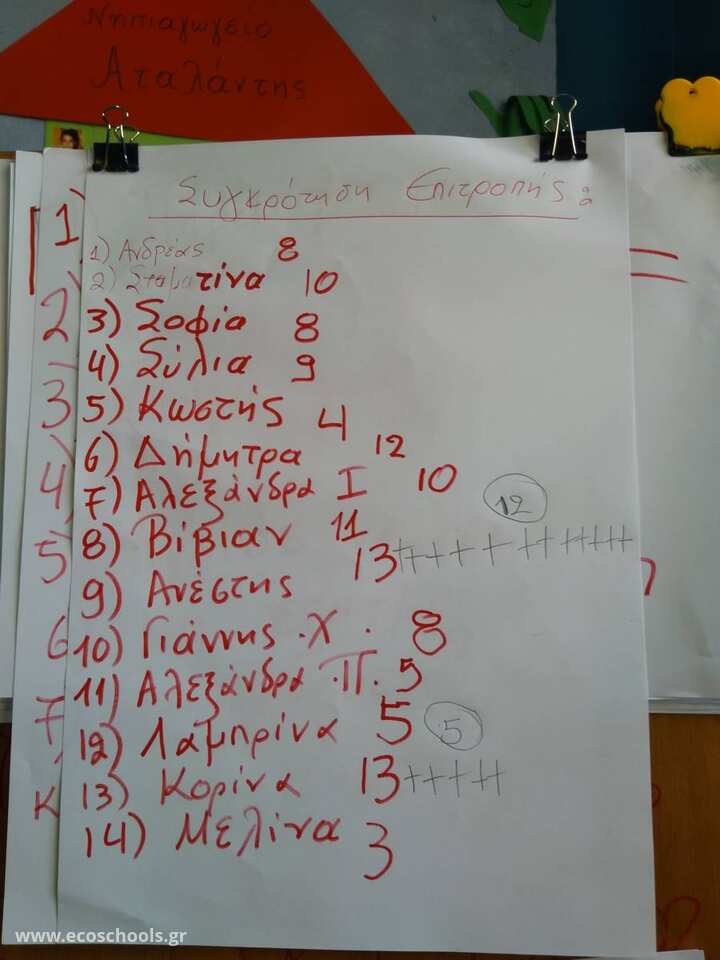 Νηπιαγωγείο
Αταλάντης
Συγκρότηση Επιτροπής:
1) Ανδρέας 8
2) Σταματίνα 10
3) Σοφία 8
4) Σύλια 9
5) Κωστής 4
6) Δήμητρα 12
7) Αλεξάνδρα Ι 10
8) Βίβιαν 11
12
9) Ανέστης 13
10) Γιάννης .Χ. 8
11) Αλεξάνδρα .Π. 5
12) Λαμπρίνα 5
5
13) Κορίνα 13
14) Μελίνα 3
1)
2)
3)
4)
5)
6
7
κ
www.ecoschools.gr